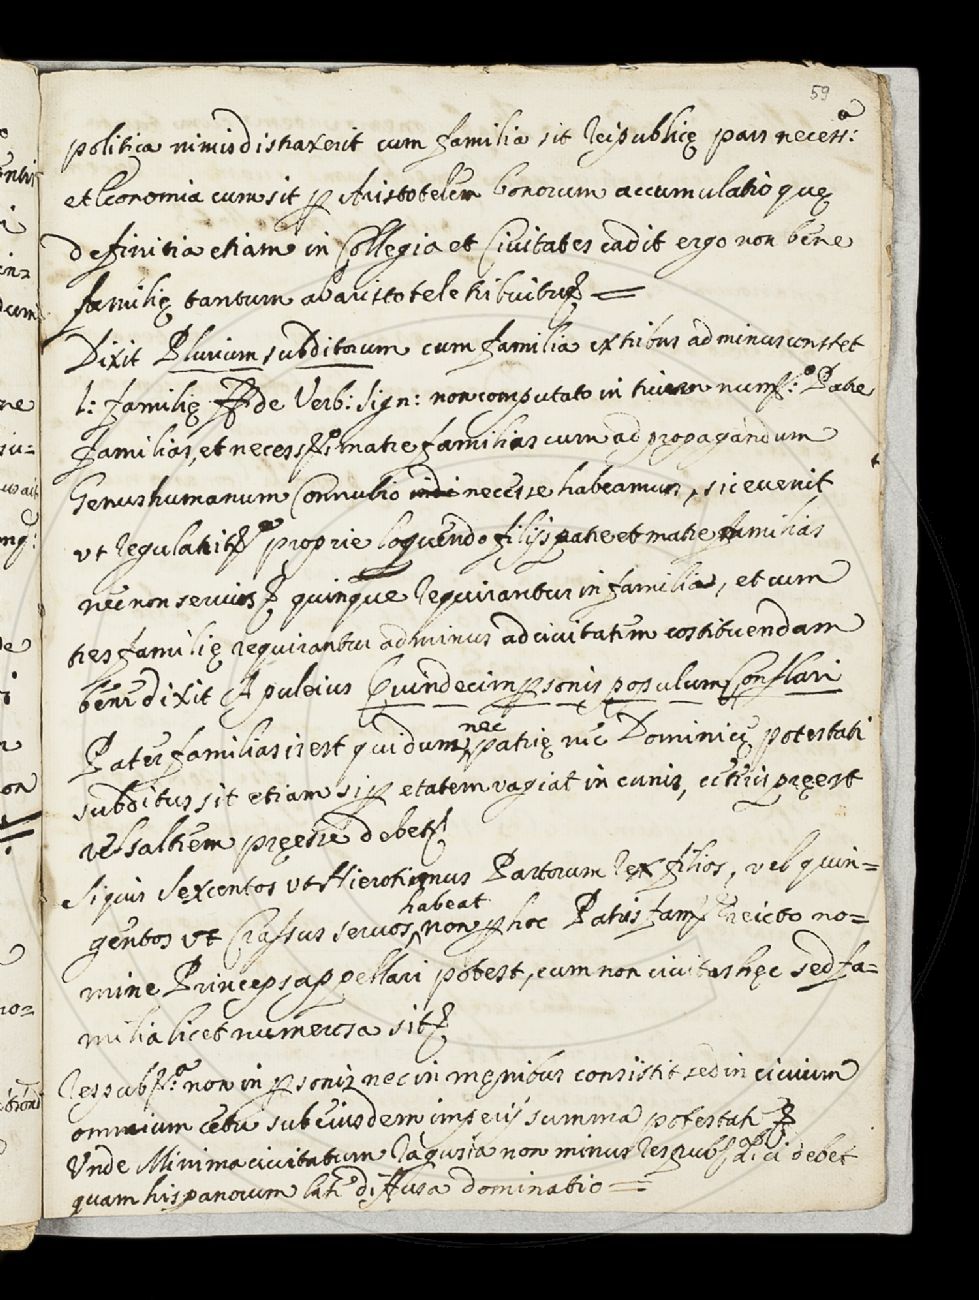 59
politica nimis distraxerit cum familia sit Reipublicę pars necess:a
et Economia cum sit p Aristotelem bonorum accumulatio quę
definitia etiam in Collegia et Civitates cadit ergo non bene
familię tantum ab aristotele tribuitur =
Dixit Plurium subditorum cum familia ex tribus ad minus constet
l: familię ff de Verb: sign: non computato in trium num:o Patre
familias, et necess:o matre familias cum ad propagandum
Genus humanum Connubio necesse habeamus, sic evenit
vt regulariter proprie loquendo filijs patre et matre familias
nec non servis quinque requirantur in familia, et cum
tres familię requirantur ad minus ad civitatem costituendam
bene dixit Apuleius Quindecim psonis populum Conflari
Pater familias is est qui dum nec patrię nec Dominicę potestati
subditus sit etiam si p etatem vagiat in cunis, cęteris pręest
vel saltem pręesse debet
Siquis Sexcentos vt Hierotimus Partorum Rex filios, vel quin=
gentos vt Crassus servos habeat, non p hoc Patris fam reicto no=
mine Princeps appellari potest, cum non civitas hęc sed fa=
milia licet numerosa sit
Respub:a non in psonis nec in męnibus consistit sed in civium
omnium cętu sub eiusdem imperij summa potestate
Vnde Minima civitatum Ragusia non minus Respub dici debet
quam hispanorum late diffusa dominatio =